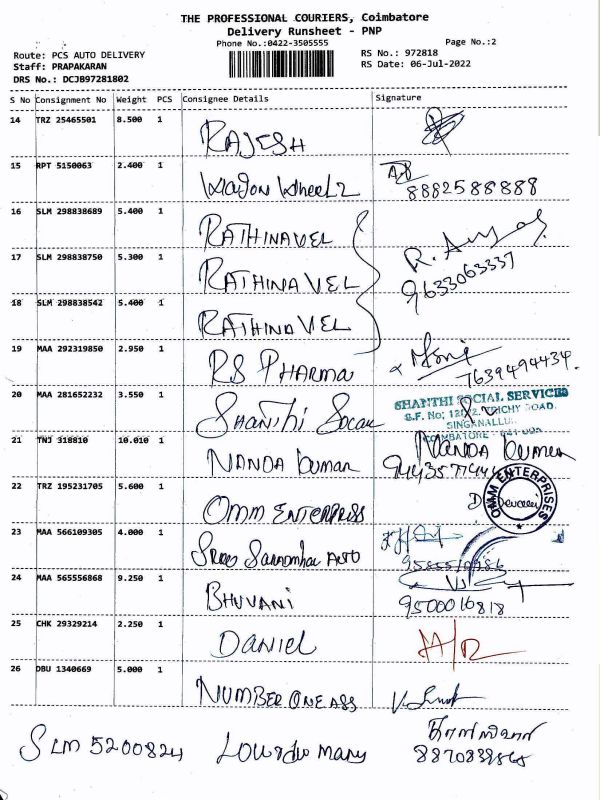 THE PROFESSIONAL COURIERS, Coimbatore
Delivery Runsheet - PNP
Phone No.:0422-3505555
Page No.:2
Route: PCS AUTO DELIVERY
RS No.: 972818
Staff: PRAPAKARAN
RS Date: 06-Jul-2022
DRS No.: DCJB97281802
S No Consignment No Weight PCS Consignee Details Signature
14 TRZ 25465501 8.500 1 RAJESH
15 RPT 5150063 2.400 1 Wagon Wheelz
8882588888
16 SLM 298838689 5.400 1 RATHINAVEL
17 SLM 298838750 5.300 1 RATHINAVEL
9633063337
18 SLM 298838542 5.400 1 RATHINAVEL
19 MAA 292319850 2.950 1 RS PHARMA
7639494434.
20 MAA 281652232 3.550 1 SHANTHI Socal
SHANTHI SOCIAL SERVICES
S.F. No: TRICHY ROAD.
SINGANALLUR
COIMBATORE
21 TNJ 318810 10.010 1 NANDA kumar
NANDA kumar
22 TRZ 195231705 5.600 1 OMM ENTERPRISS
OMM ENTERPRISES
23 MAA 566109305 4.000 1 AUTO
24 MAA 565556868 9.250 1 BHUVANI
9500016818
25 CHK 29329214 2.250 1 DANIEL
26 DBU 1340669 5.000 1 NUMBER ONE ASS
SLM 5200824 LOURDU MARY